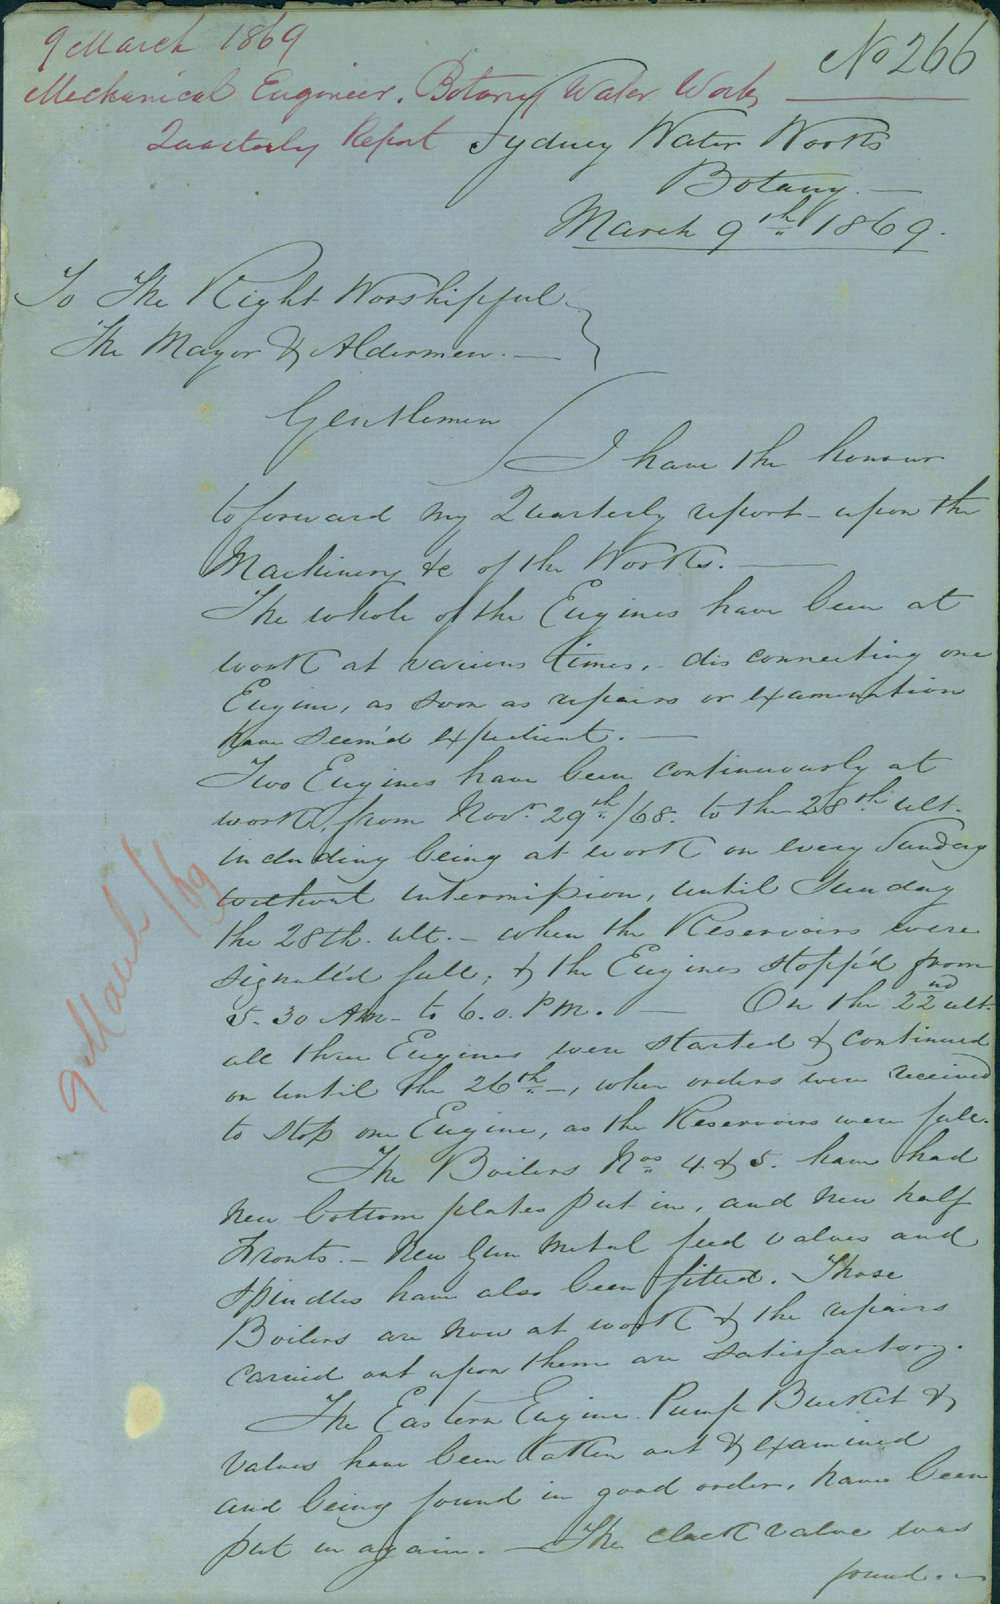 9 March 1869
No 266
Mechanical Engineer. Botany Water Works
Quarterly Report
Sydney Water Works
Botany. —
March 9th 1869.
To The Right Worshipful
The Mayor & Aldermen. —
Gentlemen
I have the honour
to forward my Quarterly report - upon the
Machinery &c of the Works. —
The whole of the Engines have been at
work at various times, - disconnecting one
Engine, as soon as repairs or examination
have seem'd expedient. —
Two Engines have been continuously at
work, from Novr. 29th/68. to the 28th ult.
including being at work on every Sunday
without intermission, until Sunday
the 28th. ult. - when the Reservoirs were
signall'd full, & the Engines stopp'd from
5.30 AM - to 6.0. PM. — On the 22nd ult.
all three Engines were started & continued
on until the 26th -, when orders were received
to stop one Engine, as the Reservoirs were full.
The Boilers Nos. 4 & 5. have had
new bottom plates put in, and new half
Fronts. - New Gun metal feed valves and
Spindles have also been fitted. Those
Boilers are now at work & the repairs
carried out upon them are satisfactory.
The Eastern Engine Pump Bucket &
Valves have been taken out & examined
and being found in good order, have been
put in again. — The clack valve was
found. -
9 March /69